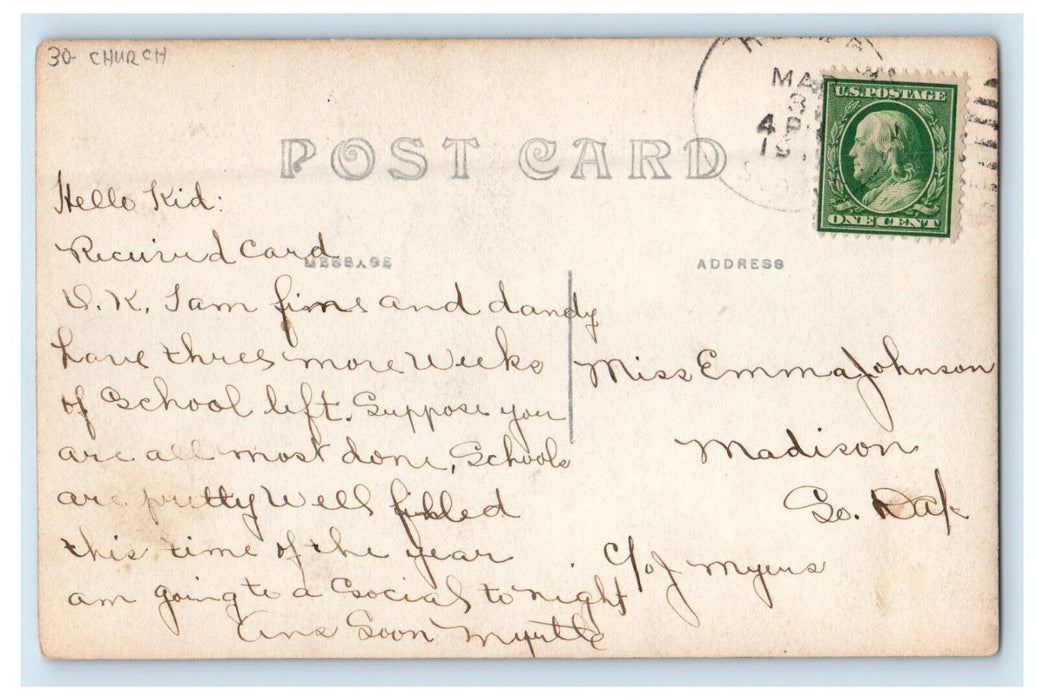 30- CHURCH
MAR
3
4 P
19
U.S. POSTAGE
ONE CENT
POST CARD
MESSAGE
ADDRESS
Hello Kid:
Recuived Card
O.K. I am fine and dandy
have three more Weeks
of School left. Suppose you
are all most done, Schools
are pretty well filled
this time of the year
am going to a Social to night
Ans Soon Myrtle
Miss Emma Johnson
Madison
So. Dak
c/o J Myers